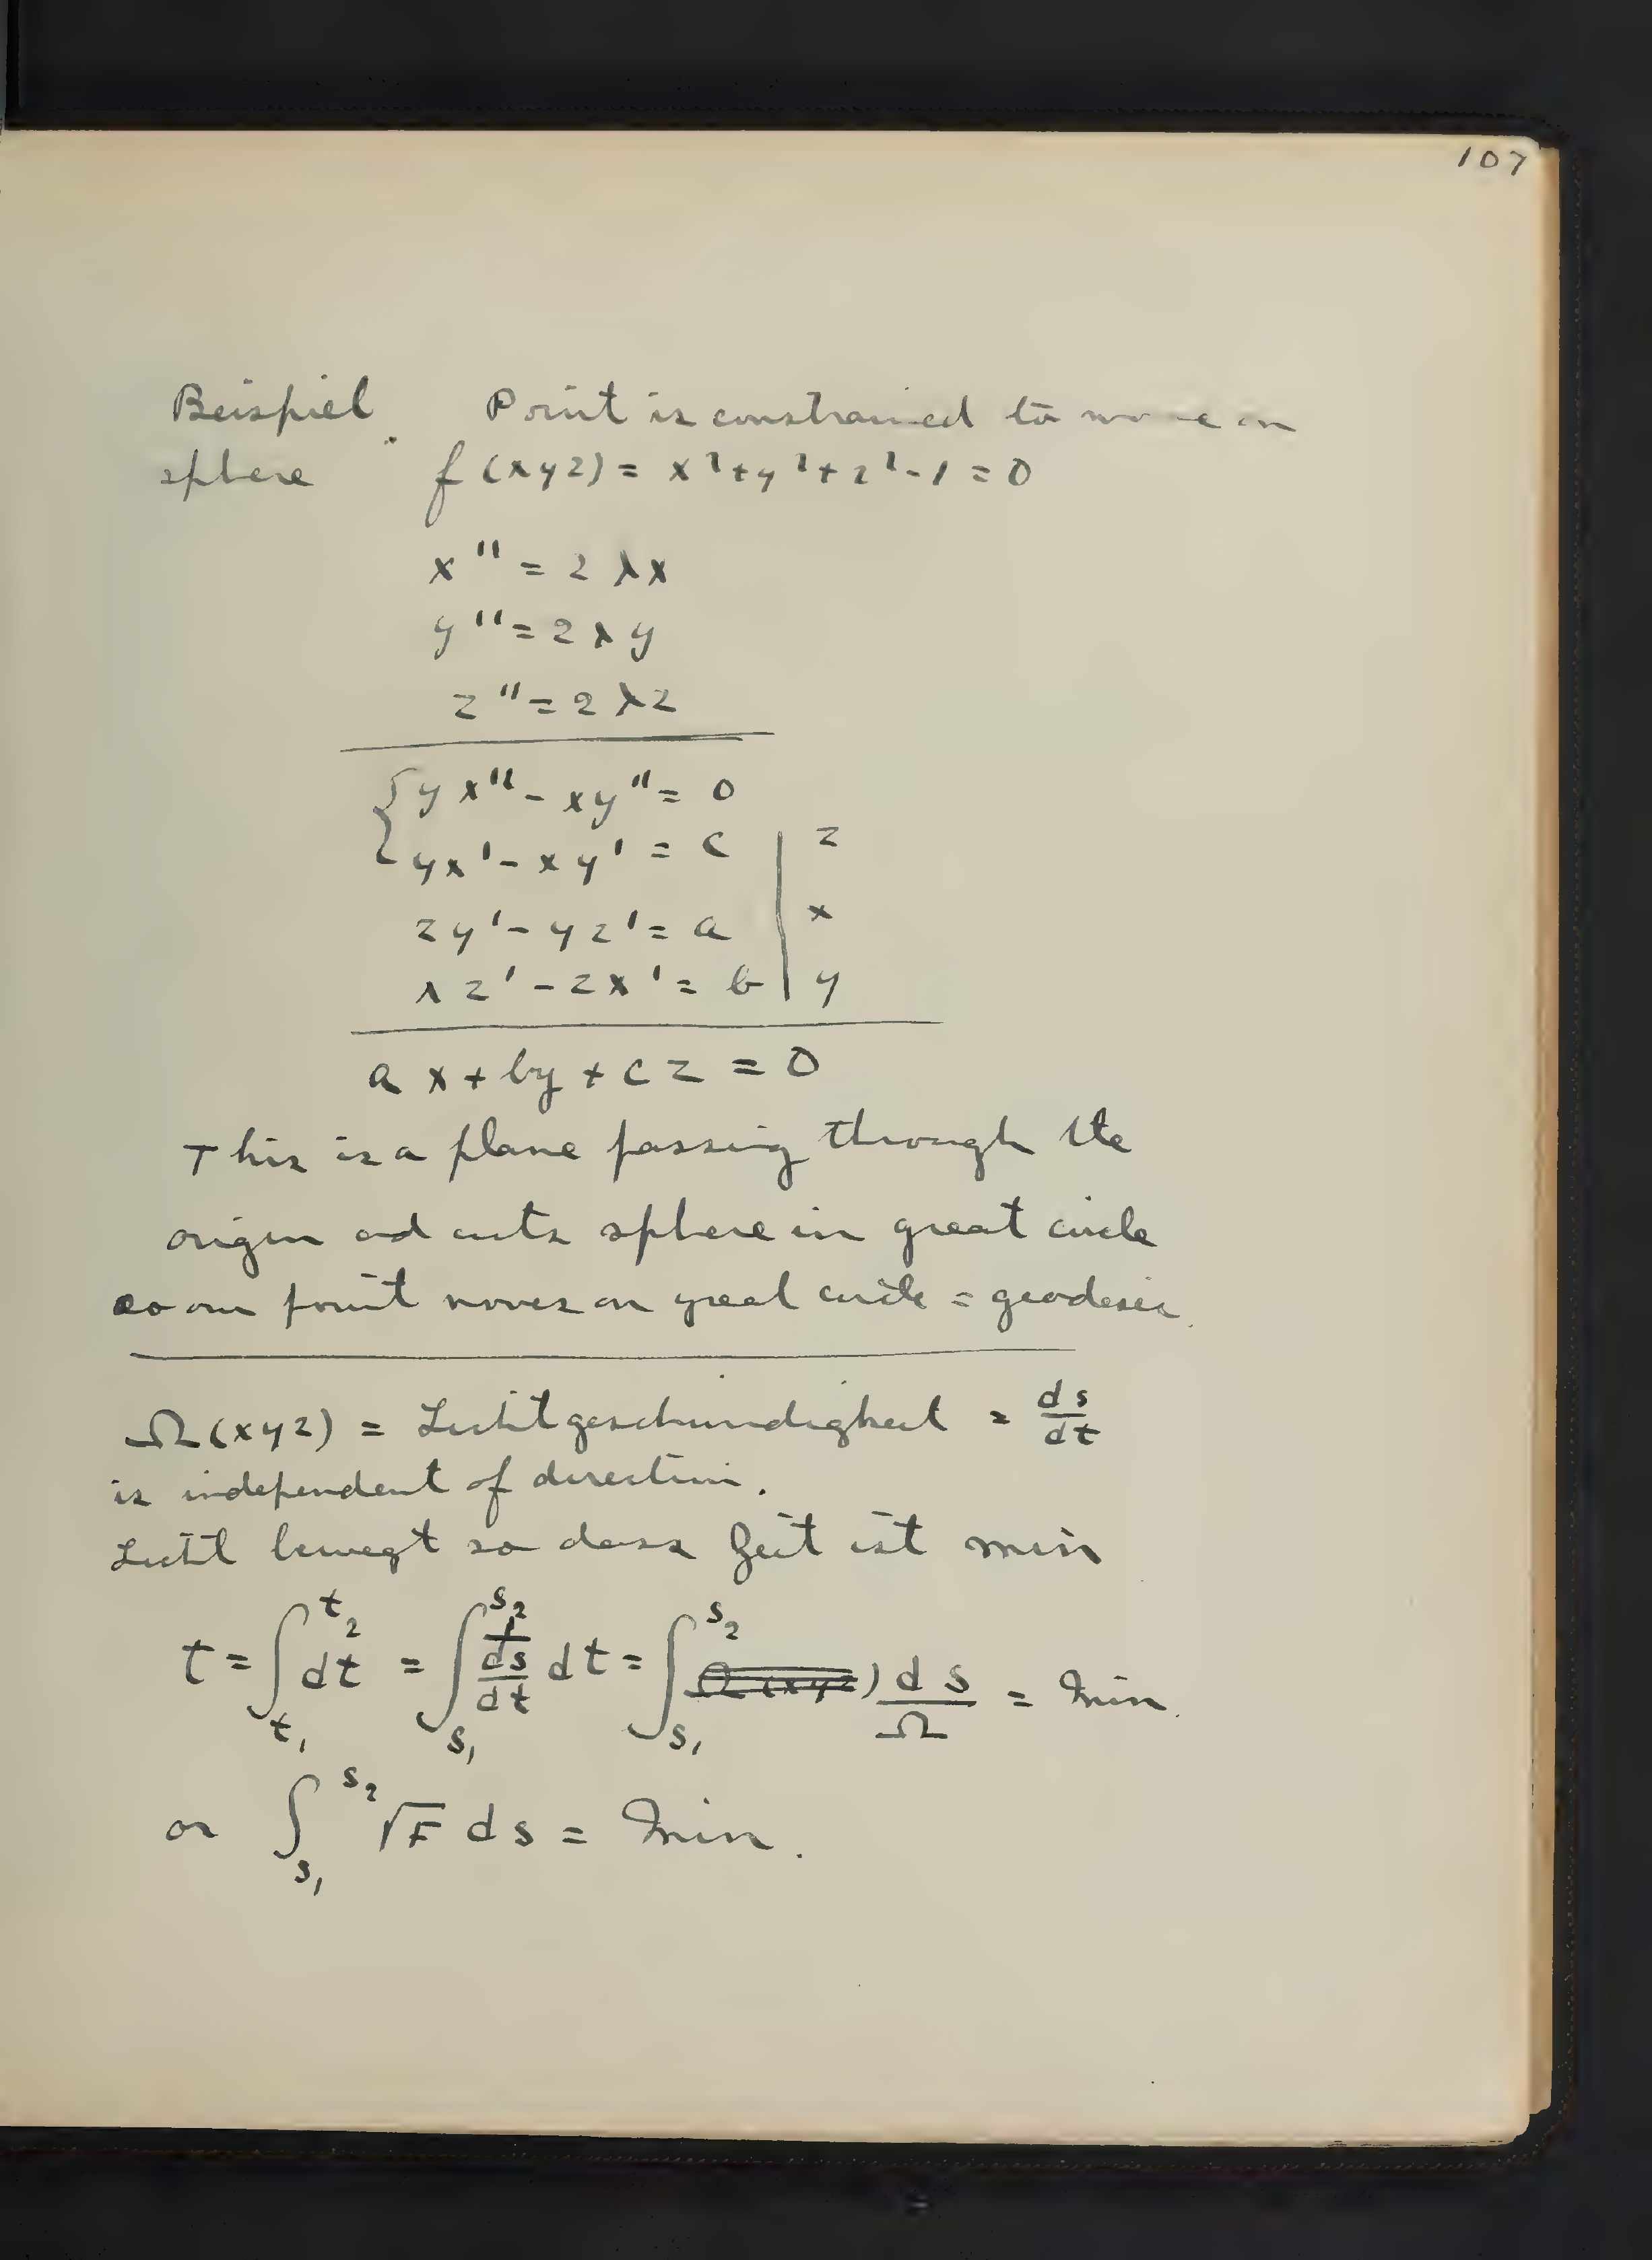 107
Beispiel. Point is constrained to move on
sphere f(xyz) = x²+y²+z²-1 = 0
x'' = 2λx
y'' = 2λy
z'' = 2λz
{yx'' - xy'' = 0
yx' - xy' = c | z
zy' - yz' = a | x
xz' - zx' = b | y
ax + by + cz = 0
This is a plane passing through the
origin and cuts sphere in great circle
so our point moves on great circle = geodesic.
Ω(xyz) = Lichtgeschwindigkeit = ds/dt
is independent of direction.
Licht bewegt so dass Zeit ist min
t = ∫_{t₁}^{t₂} dt = ∫_{s₁}^{s₂} 1/(ds/dt) dt = ∫_{s₁}^{s₂} Ω(xyz) ds/Ω = Min.
or ∫_{s₁}^{s₂} √F ds = Min.